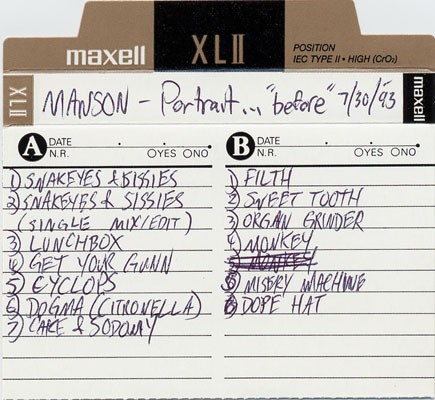 maxell XLII POSITION
IEC TYPE II • HIGH (CrO₂)
XLII MANSON - Portrait... "before" 7/30/93 maxell
A DATE . .
N.R. OYES ONO
1) SNAKEYES & SISSIES
2) SNAKEYES & SISSIES
(SINGLE MIX/EDIT)
3) LUNCHBOX
4) GET YOUR GUNN
5) CYCLOPS
6) DOGMA (CITRONELLA)
7) CAKE & SODOMY
B DATE . .
N.R. OYES ONO
1) FILTH
2) SWEET TOOTH
3) ORGAN GRINDER
4) MONKEY
5) MONKEY
5) MISERY MACHINE
6) DOPE HAT